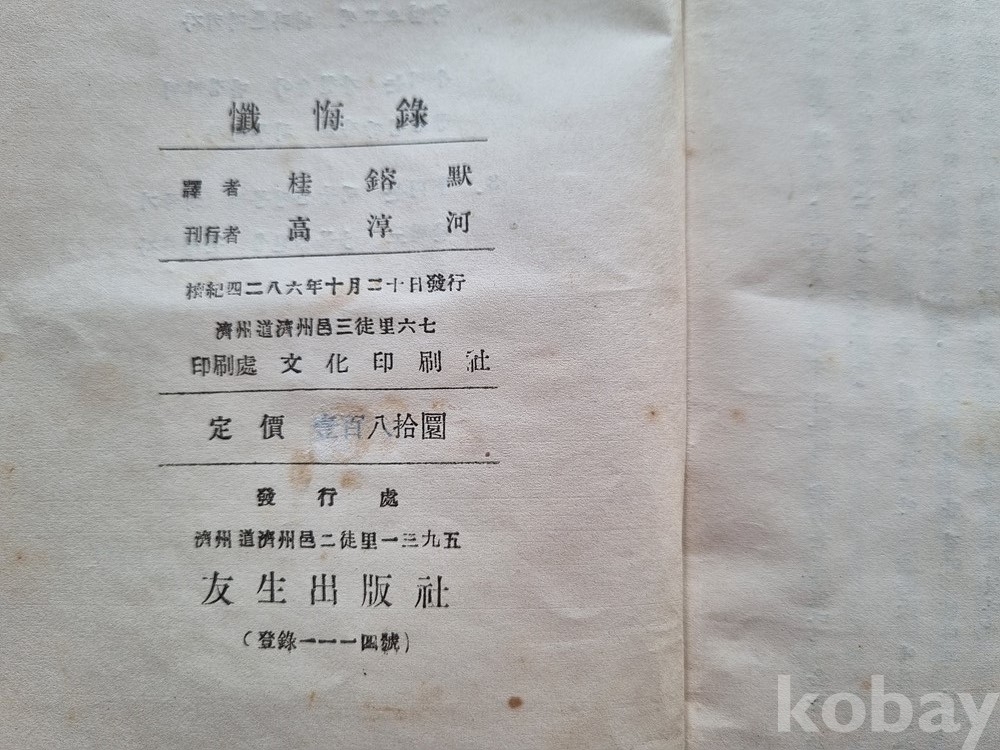 懺悔錄
譯者 桂鎔默
刊行者 高淳河
檀紀四二八六年十月二十日發行
濟州道濟州邑三徒里六七
印刷處 文化印刷社
定價 壹百八拾圜
發行處
濟州道濟州邑二徒里一三九五
友生出版社
(登錄一一一四號)
kobay